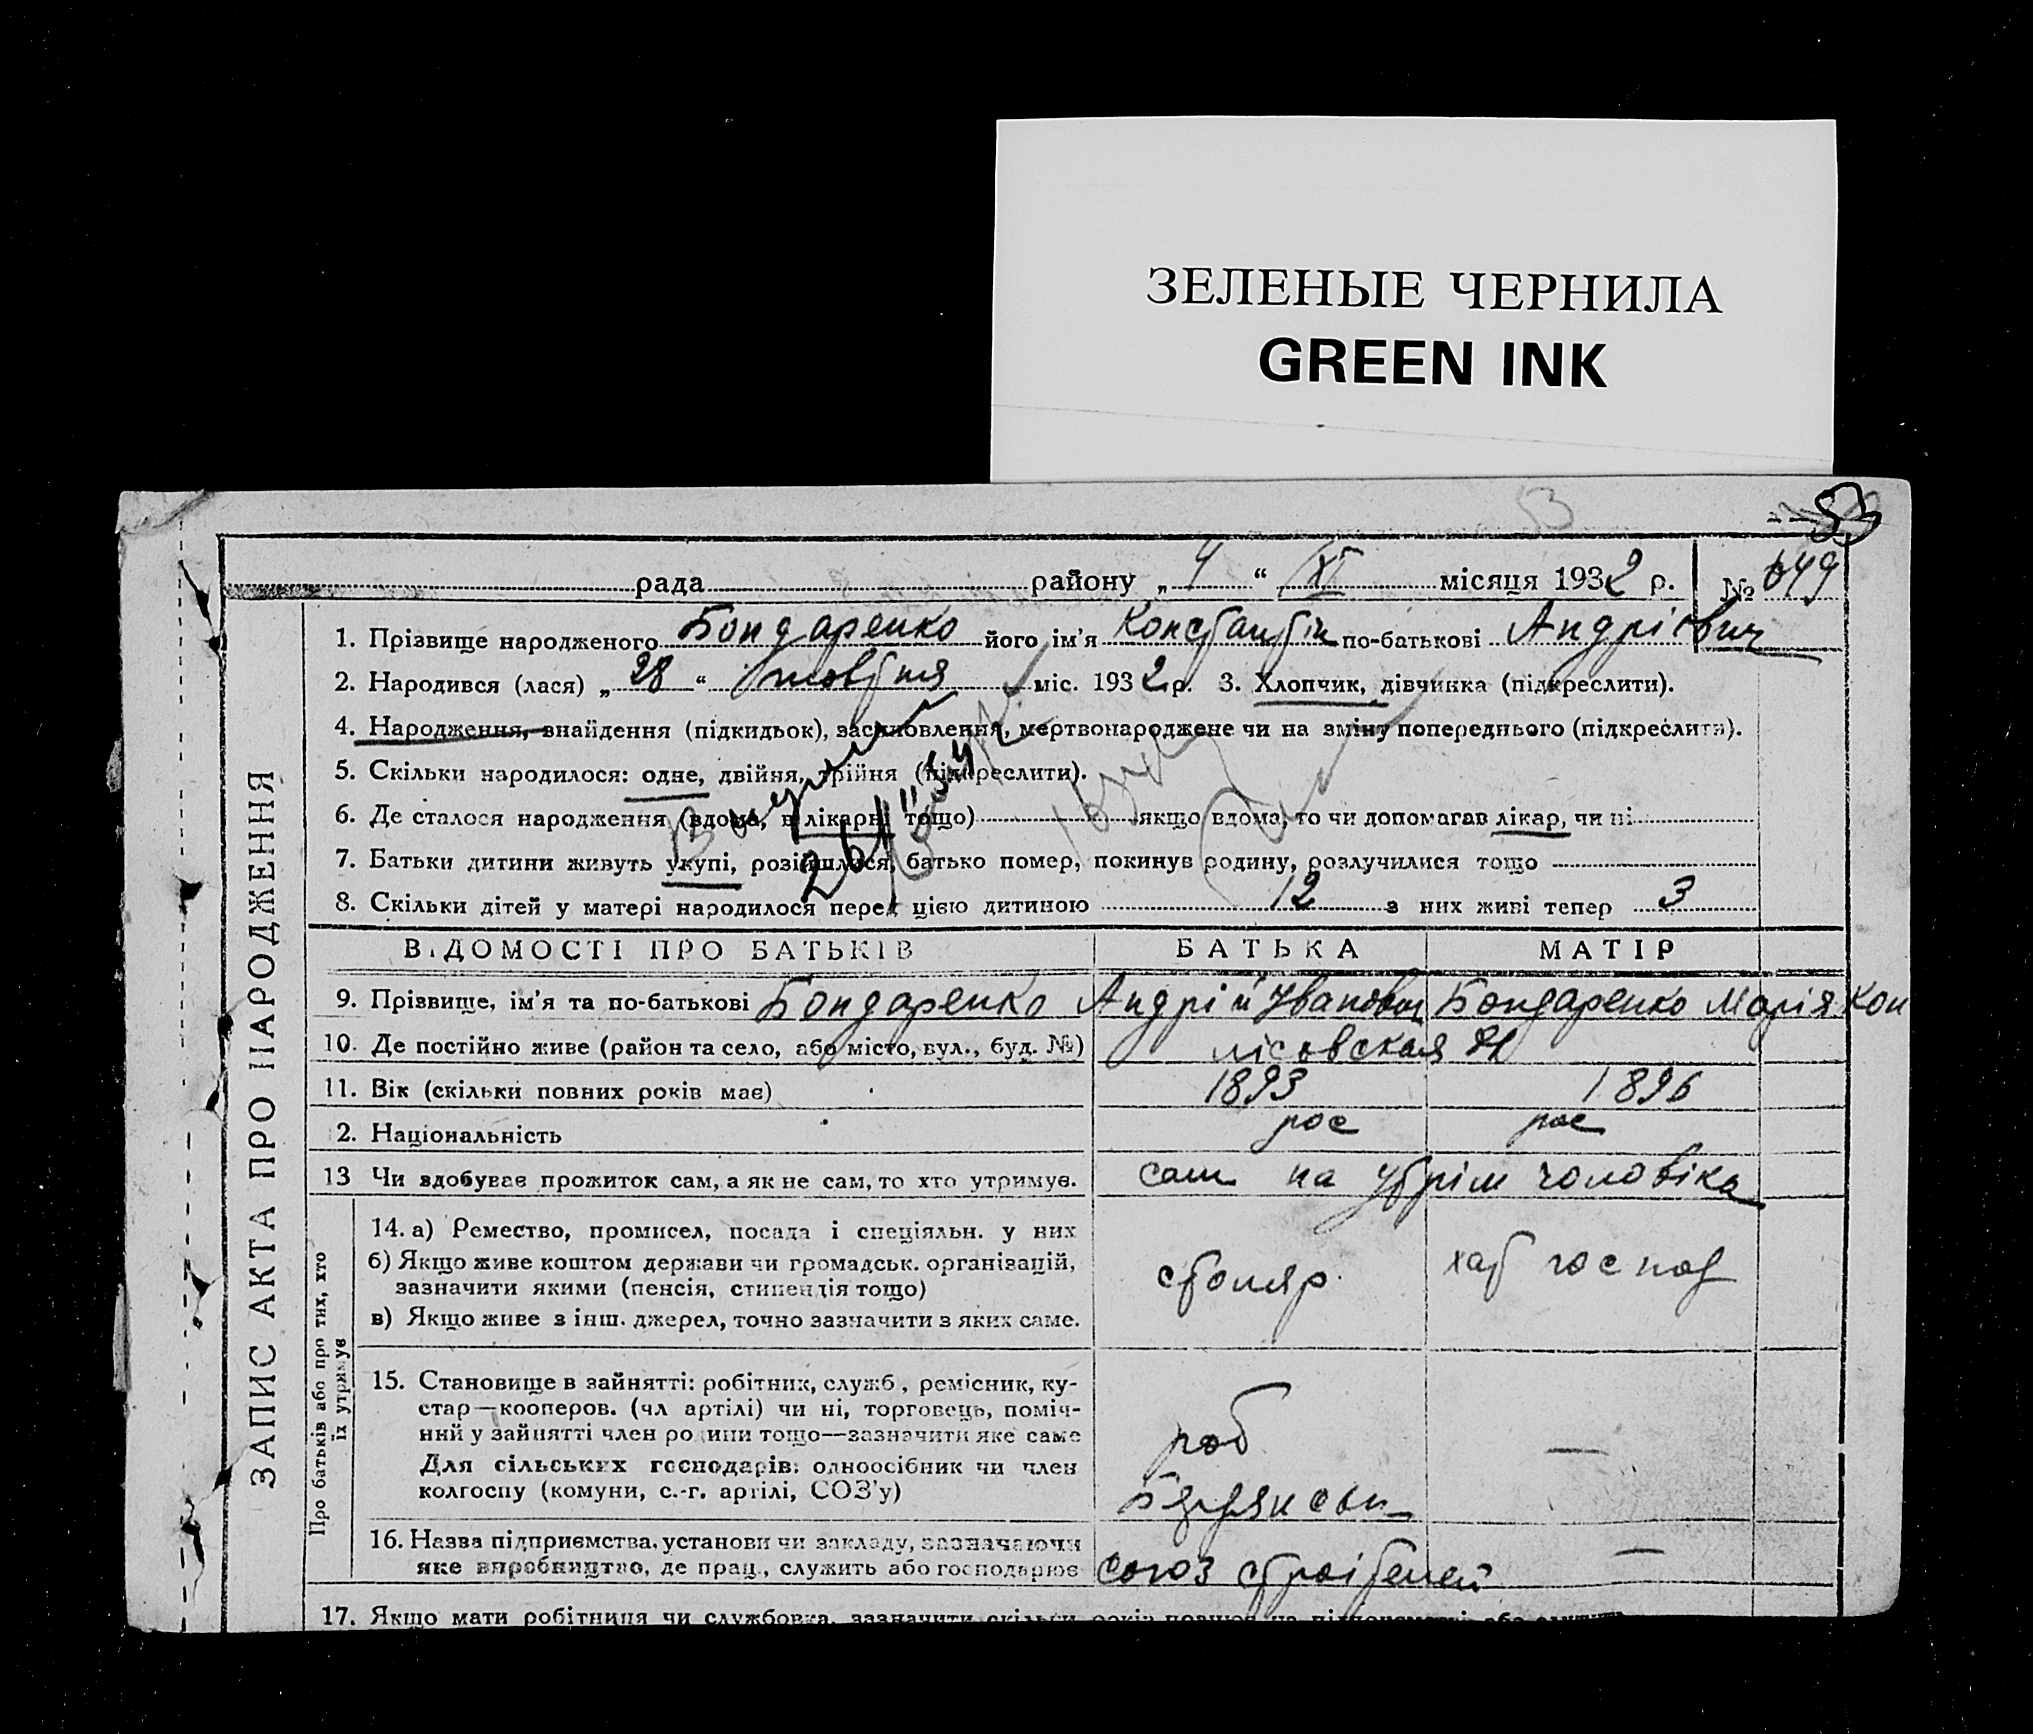 ЗЕЛЕНЫЕ ЧЕРНИЛА
GREEN INK
53
рада района „ 4 “ XI місяця 1932 р. № 649
1. Прізвище народженого Бондаренко його ім'я Константін по-батькові Андрієвич
2. Народився (лася) „ 28 “ жовтня міс. 1932 р. 3. Хлопчик, дівчинка (підкреслити).
4. Народження, внайдення (підкидьок), засиновлення, мертвонароджене чи на зміну попереднього (підкреслити).
5. Скільки народилося: одне, двійня, трійня (підкреслити).
6. Де сталося народження (вдома, в лікарні тощо) якщо вдома, то чи допомагав лікар, чи ні
7. Батьки дитини живуть укупі, розійшлися, батько помер, покинув родину, розлучилися тощо
8. Скільки дітей у матері народилося перед цією дитиною 12 з них живі тепер 3
ВІДОМОСТІ ПРО БАТЬКІВ БАТЬКА МАТІР
9. Прізвище, ім'я та по-батькові Бондаренко Андрій Іванович Бондаренко Марія Кон
10. Де постійно живе (район та село, або місто, вул., буд. №) лісовская
11. Вік (скільки повних років має) 1893 1896
2. Національність рос рос
13 Чи здобуває прожиток сам, а як не сам, то хто утримує. сам на утрім чоловіка
ЗАПИС АКТА ПРО НАРОДЖЕННЯ
Про батьків або про тих, хто їх утримує
14. а) Ремество, промисел, посада і спеціяльн. у них
б) Якщо живе коштом держави чи громадськ. організацій,
зазначити якими (пенсія, стипендія тощо)
в) Якщо живе з інш. джерел, точно зазначити з яких саме.
столяр хат господ
15. Становище в зайнятті: робітник, служб., ремісник, ку-
стар—кооперов. (чл артілі) чи ні, торговець, поміч-
ний у зайнятті член родини тощо—зазначити яке саме
Для сільських господарів: одноосібник чи член
колгоспу (комуни, с.-г. артілі, СОЗ'у)
роб —
16. Назва підприємства, установи чи закладу, зазначаючи
яке виробництво, де прац., служить або господарює
союз строітелей —
17. Якщо мати робітниця чи службовка, зазначити скільки років працює на підприємстві або